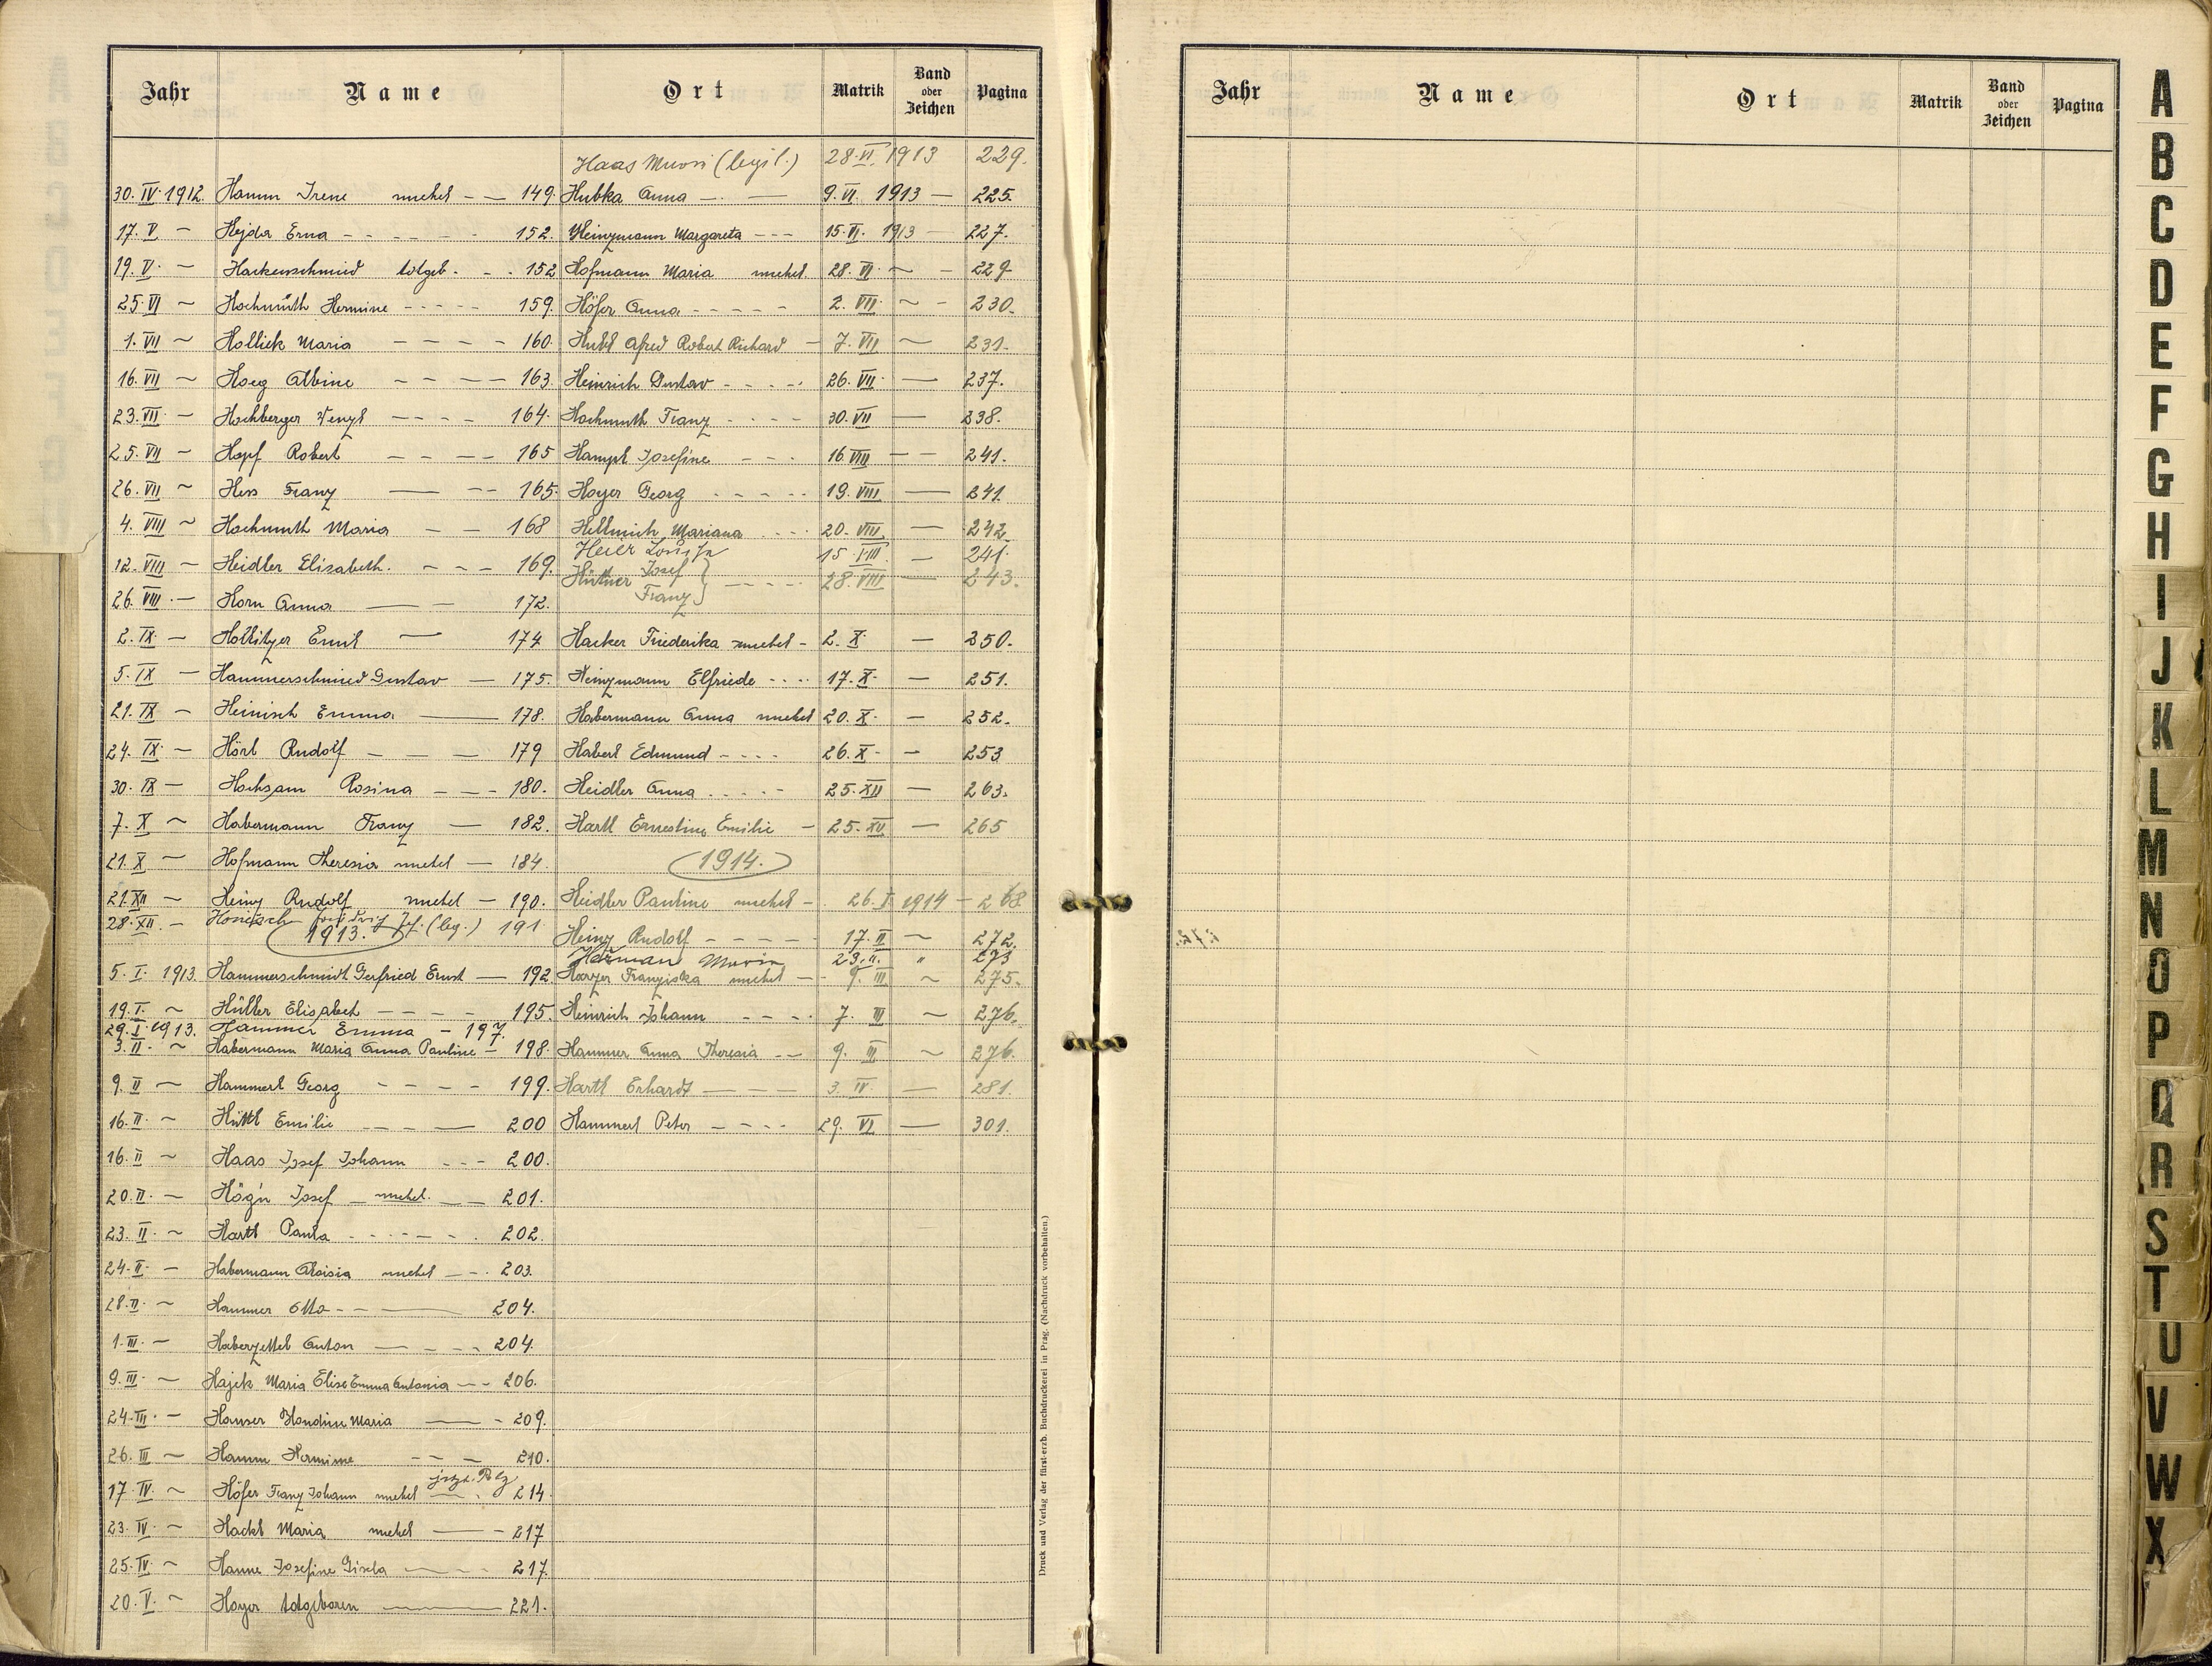 Jahr Name Ort Matrik Band oder Zeichen Pagina
Haas (legit.) 28.VI. 1913 229.
30. IV. 1912. Hamm Irene unehel - — 149. Hubka Anna — — 9. VI. 1913 — 225.
17. V — Hejda Erna - - - - - 152. Heinzmann Margareta - - - 15. VI. 1913 — 227.
19. V. — Hackenschmied totgeb. - - 152 Hofmann Maria unehel. 28. VI. ~ - 229
25. VI ~ Hochmuth Hermine - - - - - 159. Höfer Anna - - - - - 2. VII. ~ - 230.
1. VII ~ Hollick Maria - - - - 160. Alfred Robert Richard - 7. VII ~ 231.
16. VII ~ Hoeg Albine - - - — 163. Heinrich Gustav - - - - 26. VII. — 237.
23. VII. — Hochberger Wenzl - - - - 164. Hochmuth Franz - - - - 30. VII — 238.
25. VII ~ Hopf Robert - - - - 165 Hampl Josefine - - - 16 VIII — - 241.
26. VII ~ Hess Franz — - - 165. Hoyer Georg - - - - - 19. VIII. — 241.
4. VIII ~ Hochmuth Maria - - 168 Hellmich Mariana - - - 20. VIII. — 242.
15. VIII. — 241.
12. VIII ~ Heidler Elisabeth. - - - 169. Hüttner Josef } - - - - 28. VIII — 243.
Franz }
26. VIII. — Horn Anna — - 172.
2. IX. — Hollitzer Ernst — 174 Hacker Friederika unehel - 2. X. — 250.
5. IX — Hammerschmied Gustav — 175. Heinzmann Elfriede - - - - 17. X. — 251.
21. IX — Heinisch Emma — 178. Habermann Anna unehel 20. X. — 252.
24. IX. — Hörl Rudolf - - - 179 Haberl Edmund - - - - 26. X. - 253
30. IX — Hochsam Rosina - - - 180. Heidler Anna - - - - - 25. XII — 263.
7. X ~ Habermann Franz — 182. Hartl Ernestine Emilie - 25. XII — 265
21. X ~ Hofmann Theresia unehel — 184. 1914.
21. XII — Heinz Rudolf unehel — 190. Heidler Pauline unehel - 26. I 1914 - 268
28. XII. — (leg.) 191
1913. Heinz Rudolf - - - - - 17. II ~ 272.
23. II. " 273
5. I. 1913. Hammerschmidt Gerfried Ernst — 192. Franziska unehel — 9. III ~ 275.
19. I. ~ Hüller Elisabet - - - - 195. Heinrich Johann - - - - 7. III ~ 276.
29. I. 1913. Hammer Emma - 197.
3. II. ~ Habermann Maria Anna Pauline - 198. Hammer Anna Theresia - - 9. III ~ 276.
9. II — Hammerl Georg - - - - 199. Hartl Erhardt — - - 3. IV. — 281.
16. II. ~ Hüttl Emilie - - - — 200 Hammerl Peter - - - - 29. VI — 301.
16. II ~ Haas Josef Johann - - - 200.
20. II. ~ Högn Josef - unehel. — 201.
23. II. ~ Hartl Paula - - - - - . 202.
24. II. — Habermann Aloisia unehel - - . 203.
28. II. ~ Hammer Otto - - — 204.
1. III. — Haberzettel Anton — - - - 204.
9. III. ~ Hajek Maria Elise Emma Antonia - - 206.
24. III. — Hauser Maria — - 209.
26. III ~ Hamm Hermine - - - 210.
17. IV. ~ Höfer Franz Johann unehel — . 214.
23. IV. ~ Hackl Maria unehel — - 217
25. IV. ~ Hanne Josefine Gisela - - - 217.
20. V. ~ Hoyer totgeboren — 221.
Druck und Verlag der fürst-erzb. Buchdruckerei in Prag. (Nachdruck vorbehalten.)
Jahr Name Ort Matrik Band oder Zeichen Pagina
A
B
C
D
E
F
G
H
I
J
K
L
M
N
O
P
Q
R
S
T
U
V
W
X